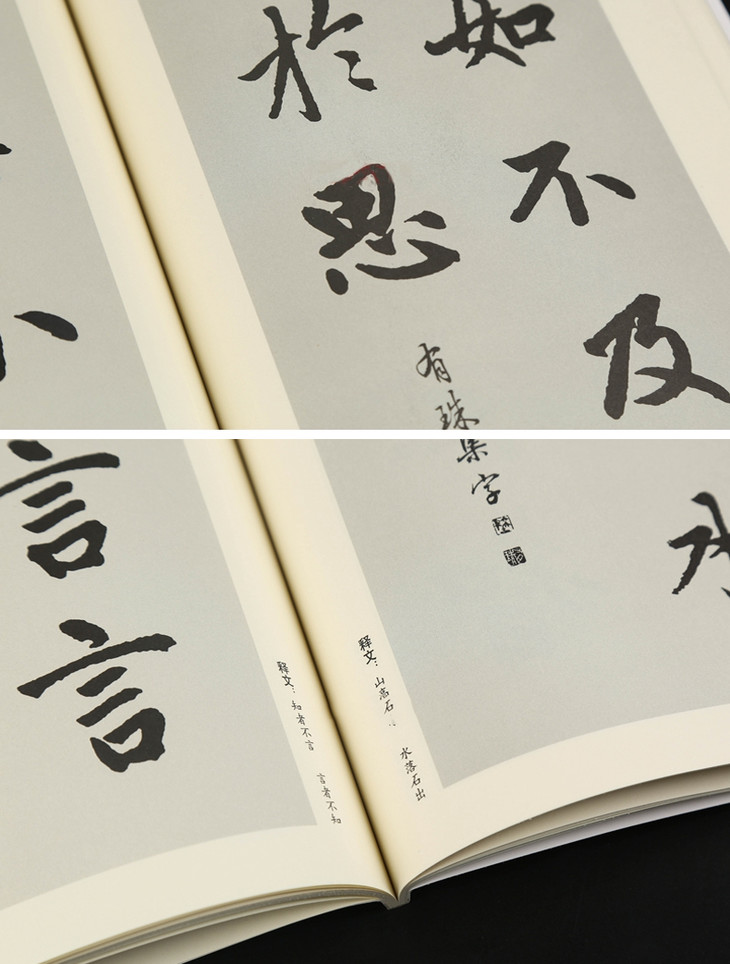 如不及
於思
有珠
集字
释文：山高石 水落石出
释文：知者不言 言者不知
言言